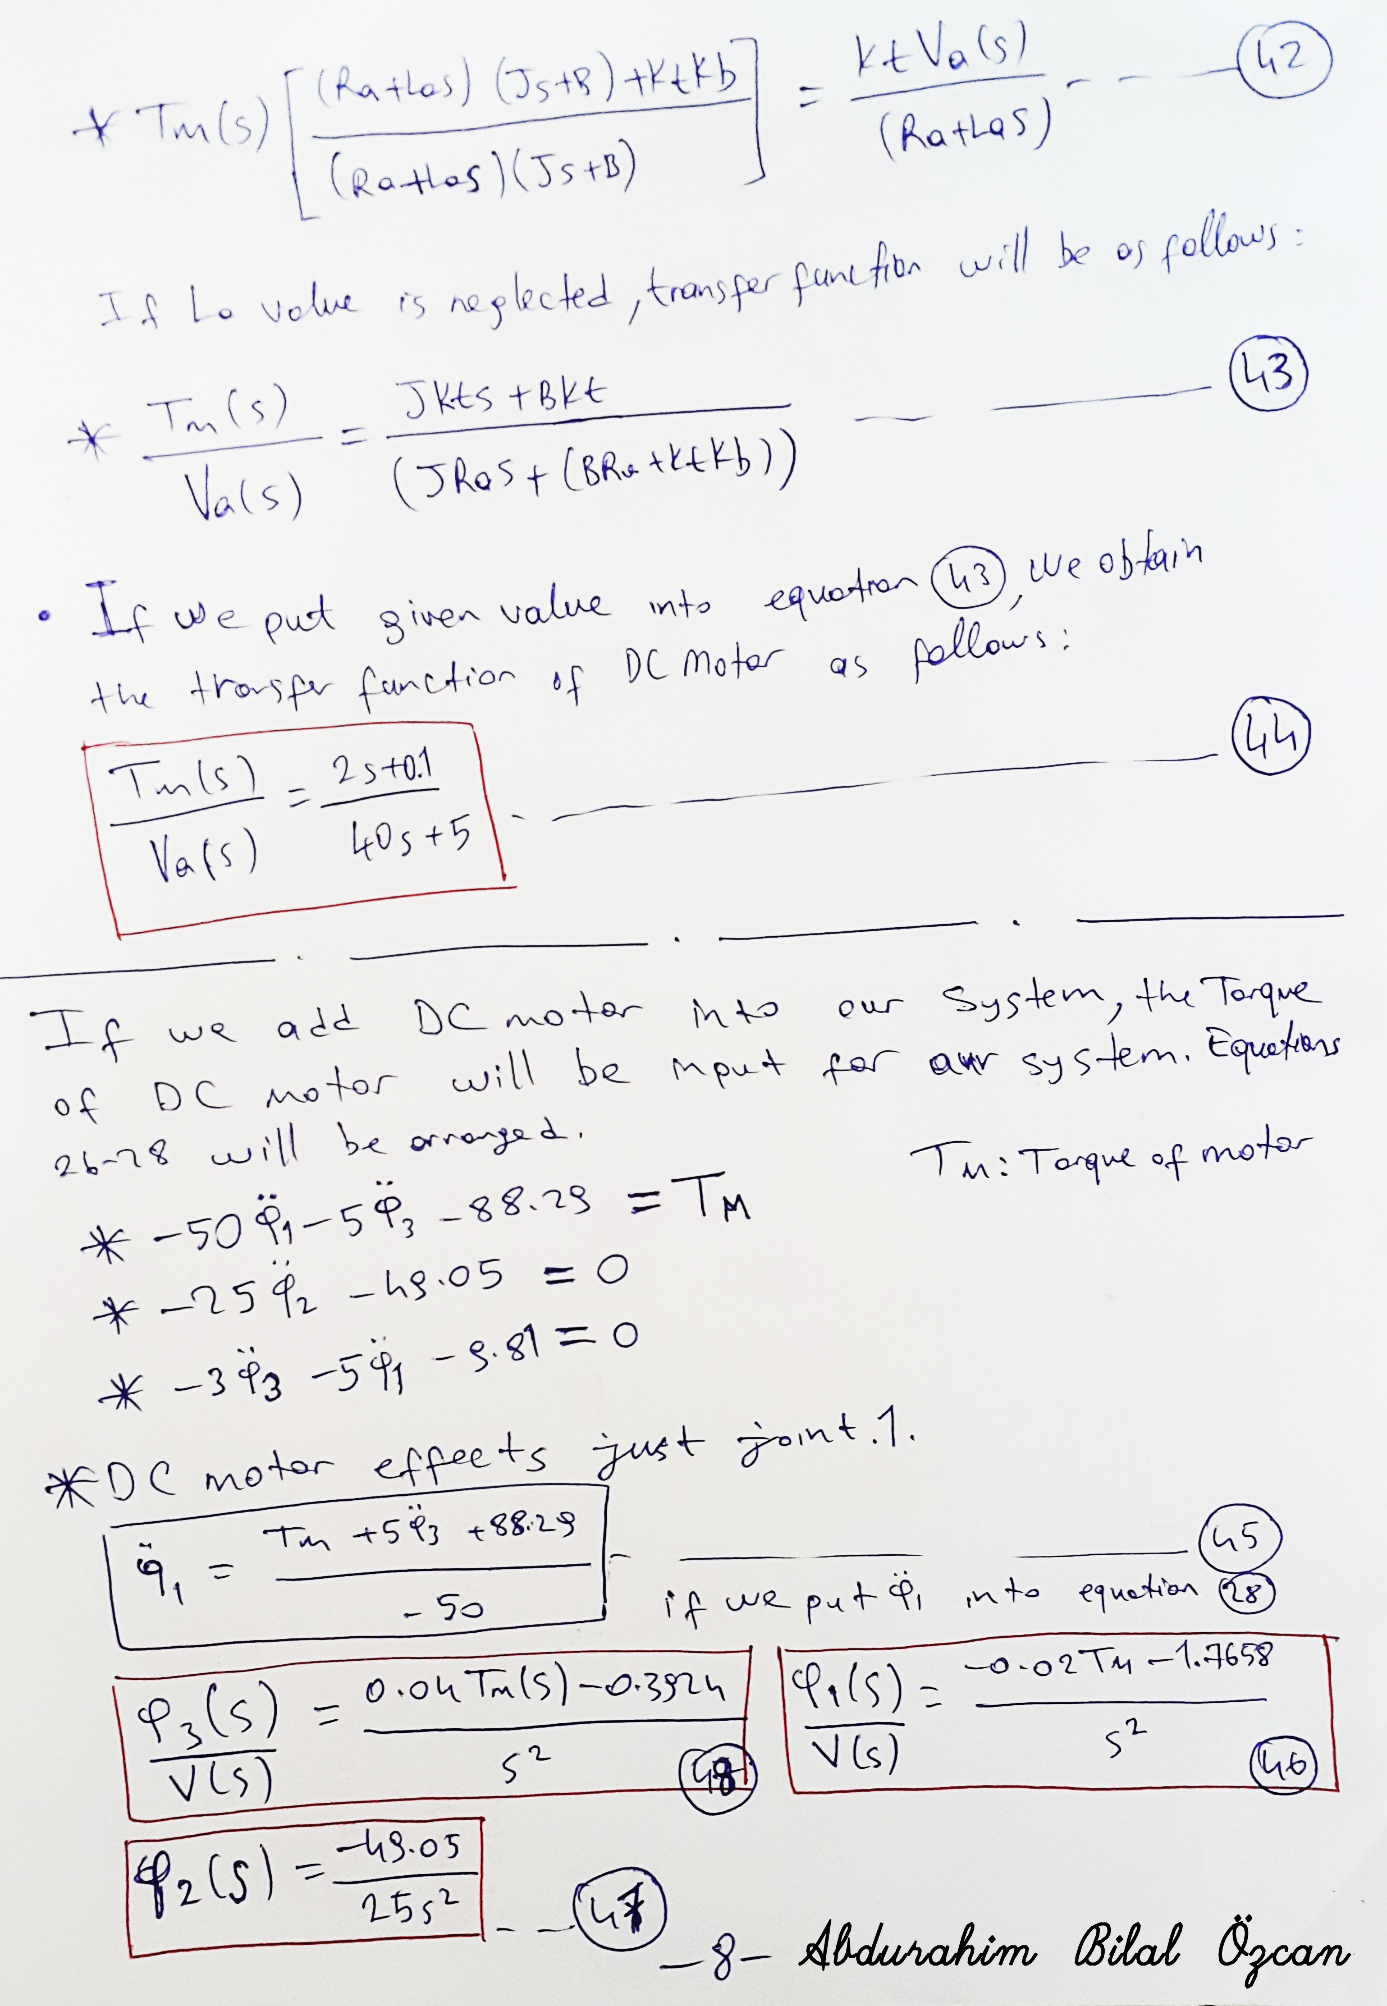 * Tm(s) [ (Ra+Las) (Js+B) + KtKb / (Ra+Las)(Js+B) ] = Kt Va(s) / (Ra+Las) - - — (42)
If La value is neglected, transfer function will be as follows:
* Tm(s) / Va(s) = JKts + BKt / (JRas + (BRa + KtKb)) — — (43)
• If we put given value into equation (43), we obtain
the transfer function of DC Motor as follows:
Tm(s) / Va(s) = 2s+0.1 / 40s+5 - — (44)
If we add DC motor into our System, the Torque
of DC motor will be input for our system. Equations
26-28 will be arranged.
TM: Torque of motor
* -50φ̈1 - 5φ̈3 - 88.29 = TM
* -25φ̈2 - 49.05 = 0
* -3φ̈3 - 5φ̈1 - 9.81 = 0
* DC motor effects just joint.1.
φ̈1 = Tm + 5φ̈3 + 88.29 / -50 - — — (45)
if we put φ̈1 into equation (28)
φ3(s) / V(s) = 0.04Tm(s) - 0.3924 / s² (48)
φ1(s) / V(s) = -0.02TM - 1.7658 / s² (46)
φ2(s) = -49.05 / 25s² - - (47)
-8- Abdurahim Bilal Özcan